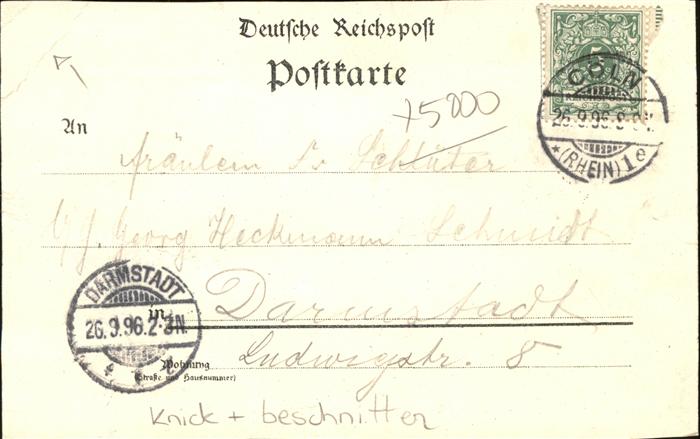 Deutsche Reichspost
Postkarte
5
REICHSPOST
CÖLN
26.9.96.8-9V.
* (RHEIN) 1e
75000
An
Fräulein Schlüter
Georg Heckmann Schmidt
DARMSTADT
26.9.96.2-3N.
in Darmstadt
Wohnung Ludwigstr. 8
(Straße und Hausnummer)
Knick + beschnitten